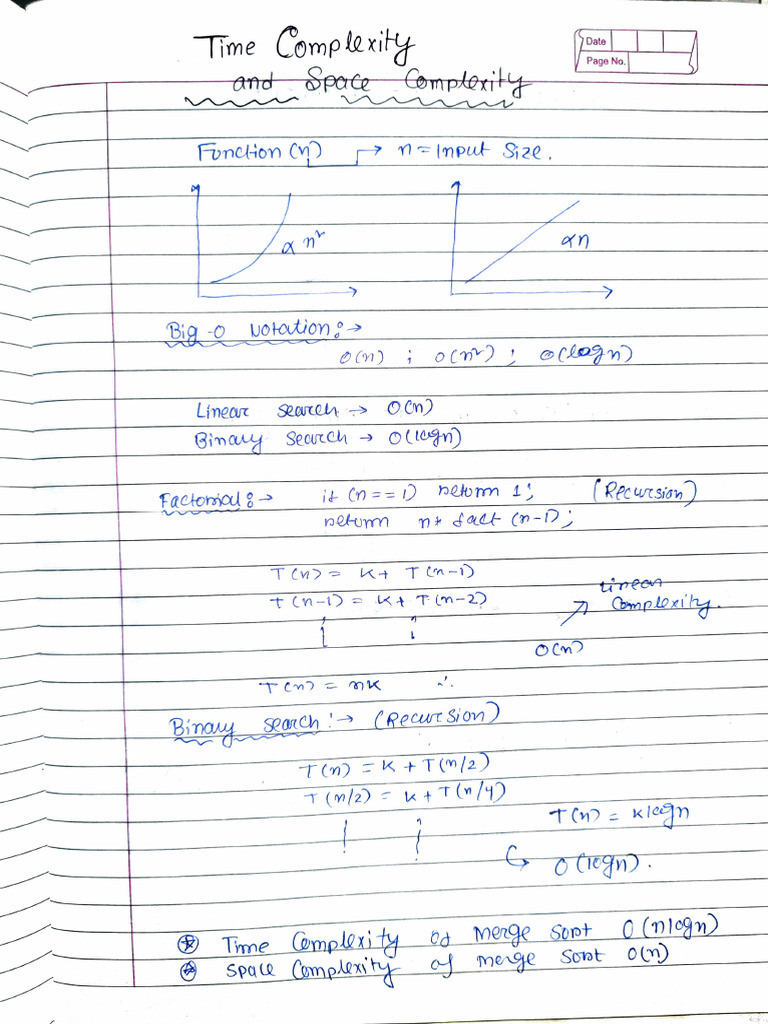 Time Complexity
and Space Complexity
Date
Page No.
Function (n) → n = Input Size.
α n²
α n
Big-O Notation :→
O(n) ; O(n²) ; O(logn)
Linear search → O(n)
Binary search → O(logn)
Factorial :→ if (n == 1) return 1; (Recursion)
return n * fact (n-1);
T(n) = K + T(n-1)
T(n-1) = K + T(n-2)
Linear
Complexity.
O(n)
T(n) = nK ∴
Binary search :→ (Recursion)
T(n) = K + T(n/2)
T(n/2) = K + T(n/4)
T(n) = K logn
↪ O(logn).
⊛ Time Complexity of merge sort O(nlogn)
⊛ Space Complexity of merge sort O(n)